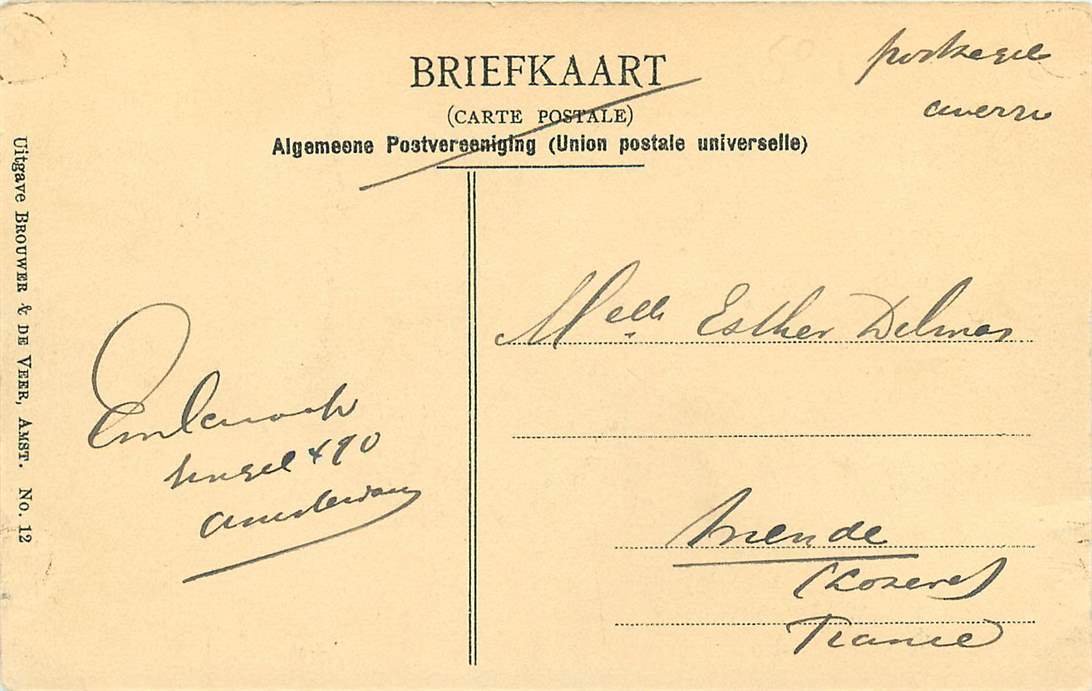 BRIEFKAART
(CARTE POSTALE)
Algemeene Postvereeniging (Union postale universelle)
Uitgave BROUWER & DE VEER, AMST. No. 12
postzegel
Melle Esther Delmas
Mende
(Lozère)
France
Singel 490
Amsterdam